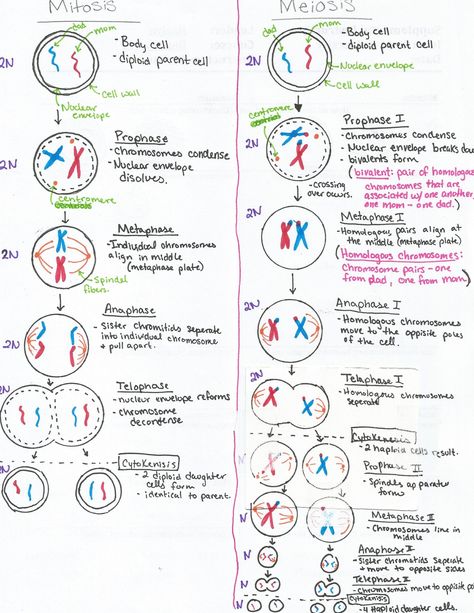 Mitosis
dad
mom
2N
- Body cell
- diploid parent cell
Nuclear
envelope
Cell wall
2N
Prophase
- chromosomes condense
- Nuclear envelope
disolves.
centromere
2N
Metaphase
- Individual chromosomes
align in middle
(metaphase plate)
Spindel
fibers.
2N
Anaphase
- Sister chromitids seperate
into individual chromosome
+ pull apart.
2N
Telophase
- nuclear envelope reforms
- chromosome
decordense
N
CytoKenisis
- 2 diploid daughter
cells form
- identical to parent.
Meiosis
dad
mom
2N
- Body cell
- diploid parent cell
Nuclear envelope
cell wall
centromere
2N
Prophase I
- Chromosomes condense
- Nuclear envelope breaks do
- bivalents form
(bivalent: pair of homologous
chromosomes that are
associated w/ one another,
one mom - one dad.)
- crossing
over occurs.
2N
Metaphase I
- Homologous pairs align at
the middle (metaphase plate)
(Homologous chromosomes:
Chromosome pairs - one
from dad, one from mom)
2N
Anaphase I
- Homologous chromosomes
move to the opposite poles
of the cell.
2N
Telaphase I
- Homologous chromosomes
seperate
CytoKenesis
- 2 haploid cells result.
N
Prophase II
- Spindles apparatus
forms
N
Metaphase II
- Chromosomes line in
middle
N
Anaphase II
- Sister chromatids seperate
+ move to opposite sides
N
Telephase II
- Chromosomes move to opposite po
N
Cytokinesis
- 4 Haploid daughter cells